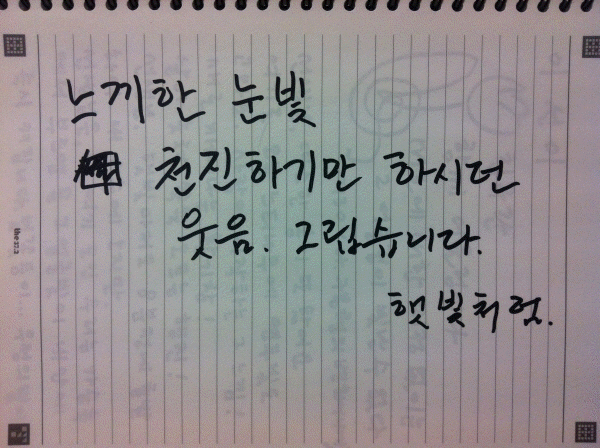 느끼한 눈빛
천진하기만 하시던
웃음. 그립습니다.
햇빛처럼.